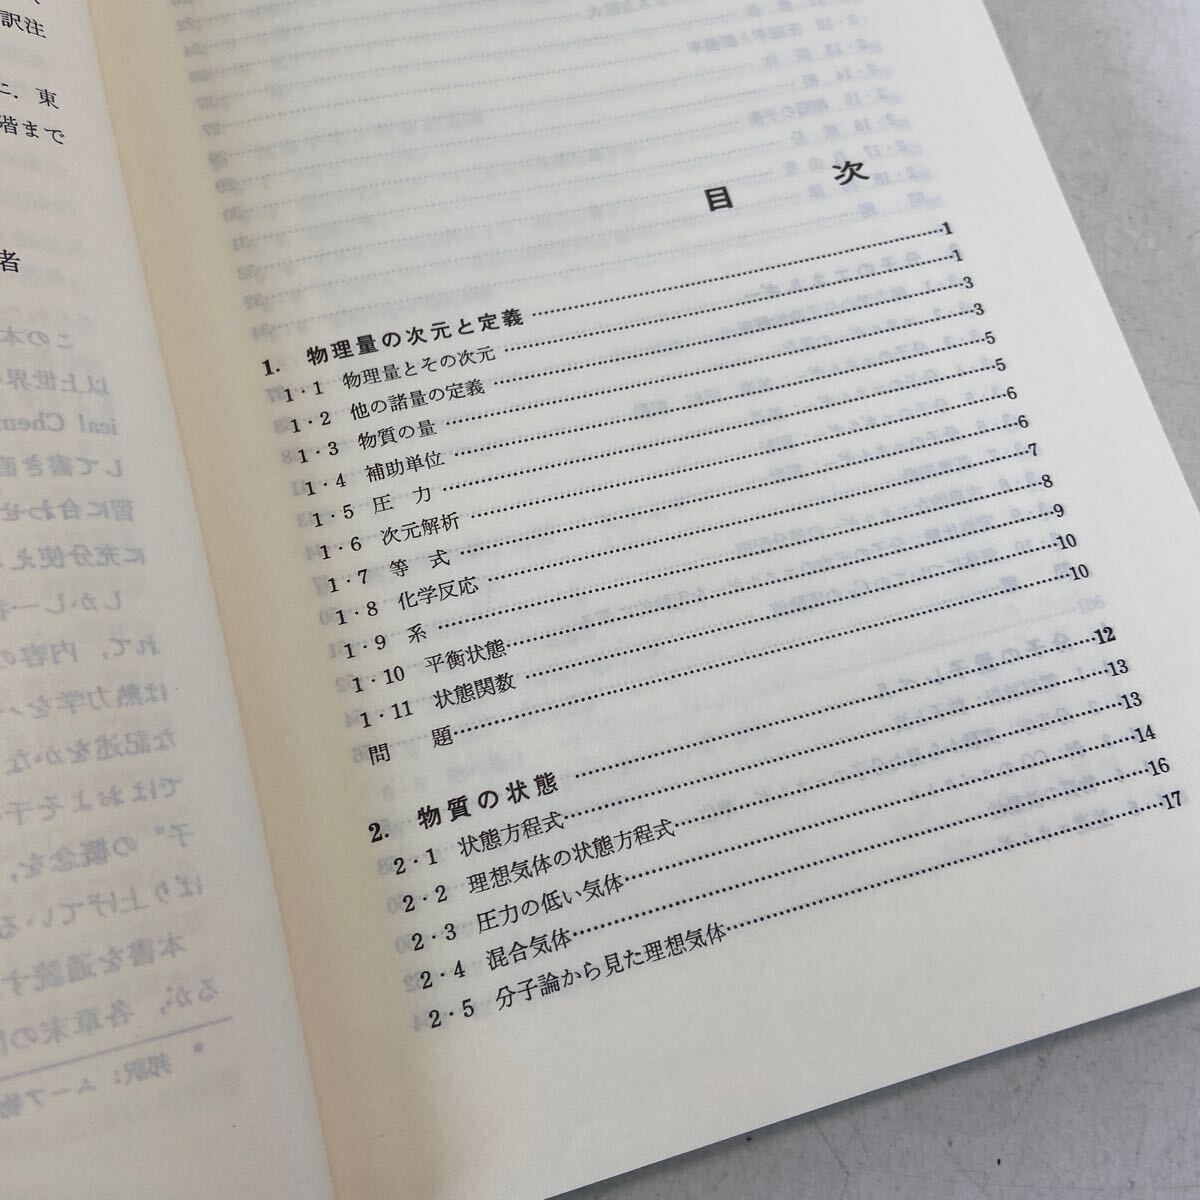 訳注
に．東
階まで
者
目　次
1. 物理量の次元と定義……1
1・1 物理量とその次元……1
1・2 他の諸量の定義……3
1・3 物質の量……3
1・4 補助単位……5
1・5 圧　力……5
1・6 次元解析……6
1・7 等　式……6
1・8 化学反応……7
1・9 系……8
1・10 平衡状態……9
1・11 状態関数……10
問　題……10
2. 物質の状態……12
2・1 状態方程式……13
2・2 理想気体の状態方程式……13
2・3 圧力の低い気体……14
2・4 混合気体……16
2・5 分子論から見た理想気体……17